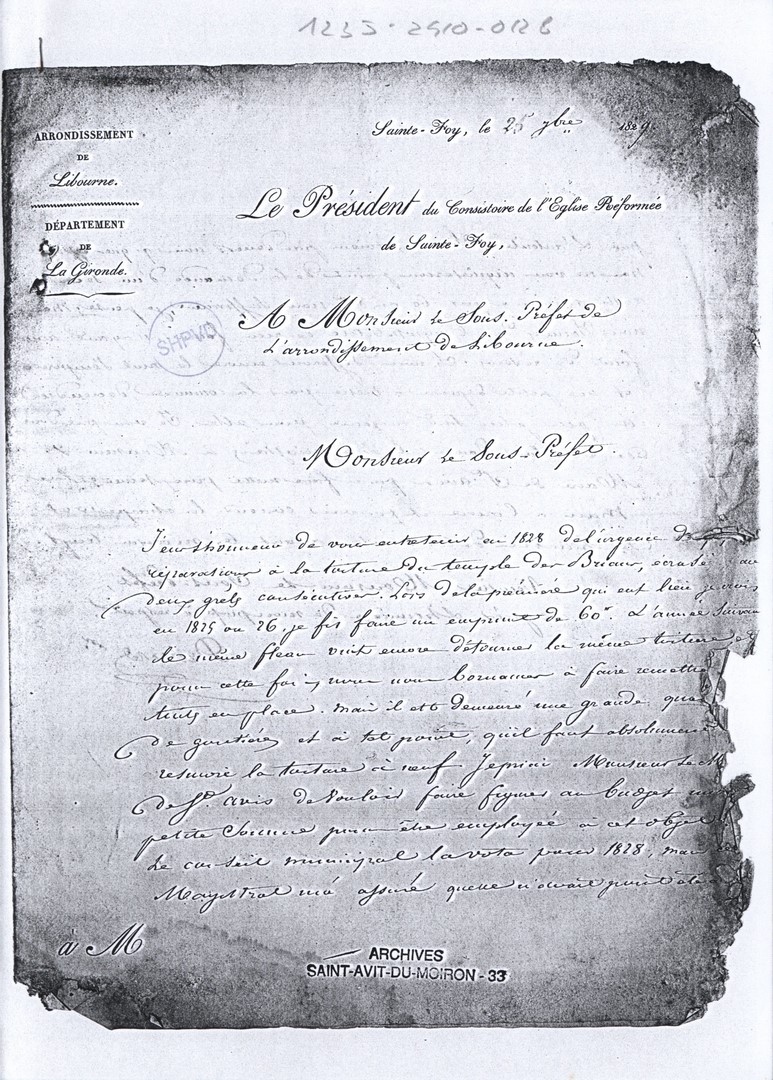 1235-2910-012B
ARRONDISSEMENT
DE
Libourne.
DÉPARTEMENT
DE
La Gironde.
Sainte-Foy, le 25 9bre 1829.
Le Président du Consistoire de l'Eglise Réformée
de Sainte-Foy,
SHPVD
A Monsieur le Sous-Préfet de
L'arrondissement de Libourne.
Monsieur le Sous-Préfet.
J'eus l'honneur de vous entretenir en 1828 de l'urgence de
réparations à la toiture du temple des Briaux, écrasée au
deux grels consécutives. Lors de la première qui eut lieu je crois
en 1825 ou 26, je fis faire un emprunt de 60 L'année Suivan
le même fleau vint encore détourner la même toiture et
pour cette fois, nous nous bornames à faire remettre
tuiles en place. Mais il est demeuré une grande quan
de goutières et à tel point, qu'il faut absolument
resuivre la toiture à neuf Je priai Monsieur Le M
de St. avis de Vouloir faire figurer au budget une
petite Somme pour être employée à cet objet
Le conseil municipal la vota pour 1828, mais
Magistrat m'a assuré quelle n'avait point été
à M
ARCHIVES
SAINT-AVIT-DU-MOIRON - 33